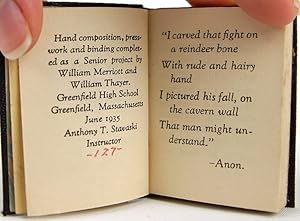 Hand composition, press-
work and binding complet-
ed as a Senior project by
William Merriott and
William Thayer,
Greenfield High School
Greenfield, Massachusetts
June 1935
Anthony T. Stavaski
Instructor
-127-
"I carved that fight on
a reindeer bone
With rude and hairy
hand
I pictured his fall, on
the cavern wall
That man might un-
derstand."
-Anon.